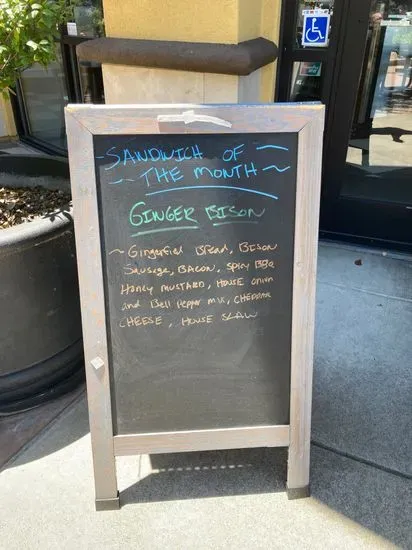 SANDWICH OF
~ THE MONTH ~
GINGER BISON
~ Gingerfied Bread, BISON
Sausage, BACON, Spicy BBQ
Honey MUSTARD, HOUSE onion
and Bell Pepper mix, CHEDDAR
CHEESE, HOUSE SLAW